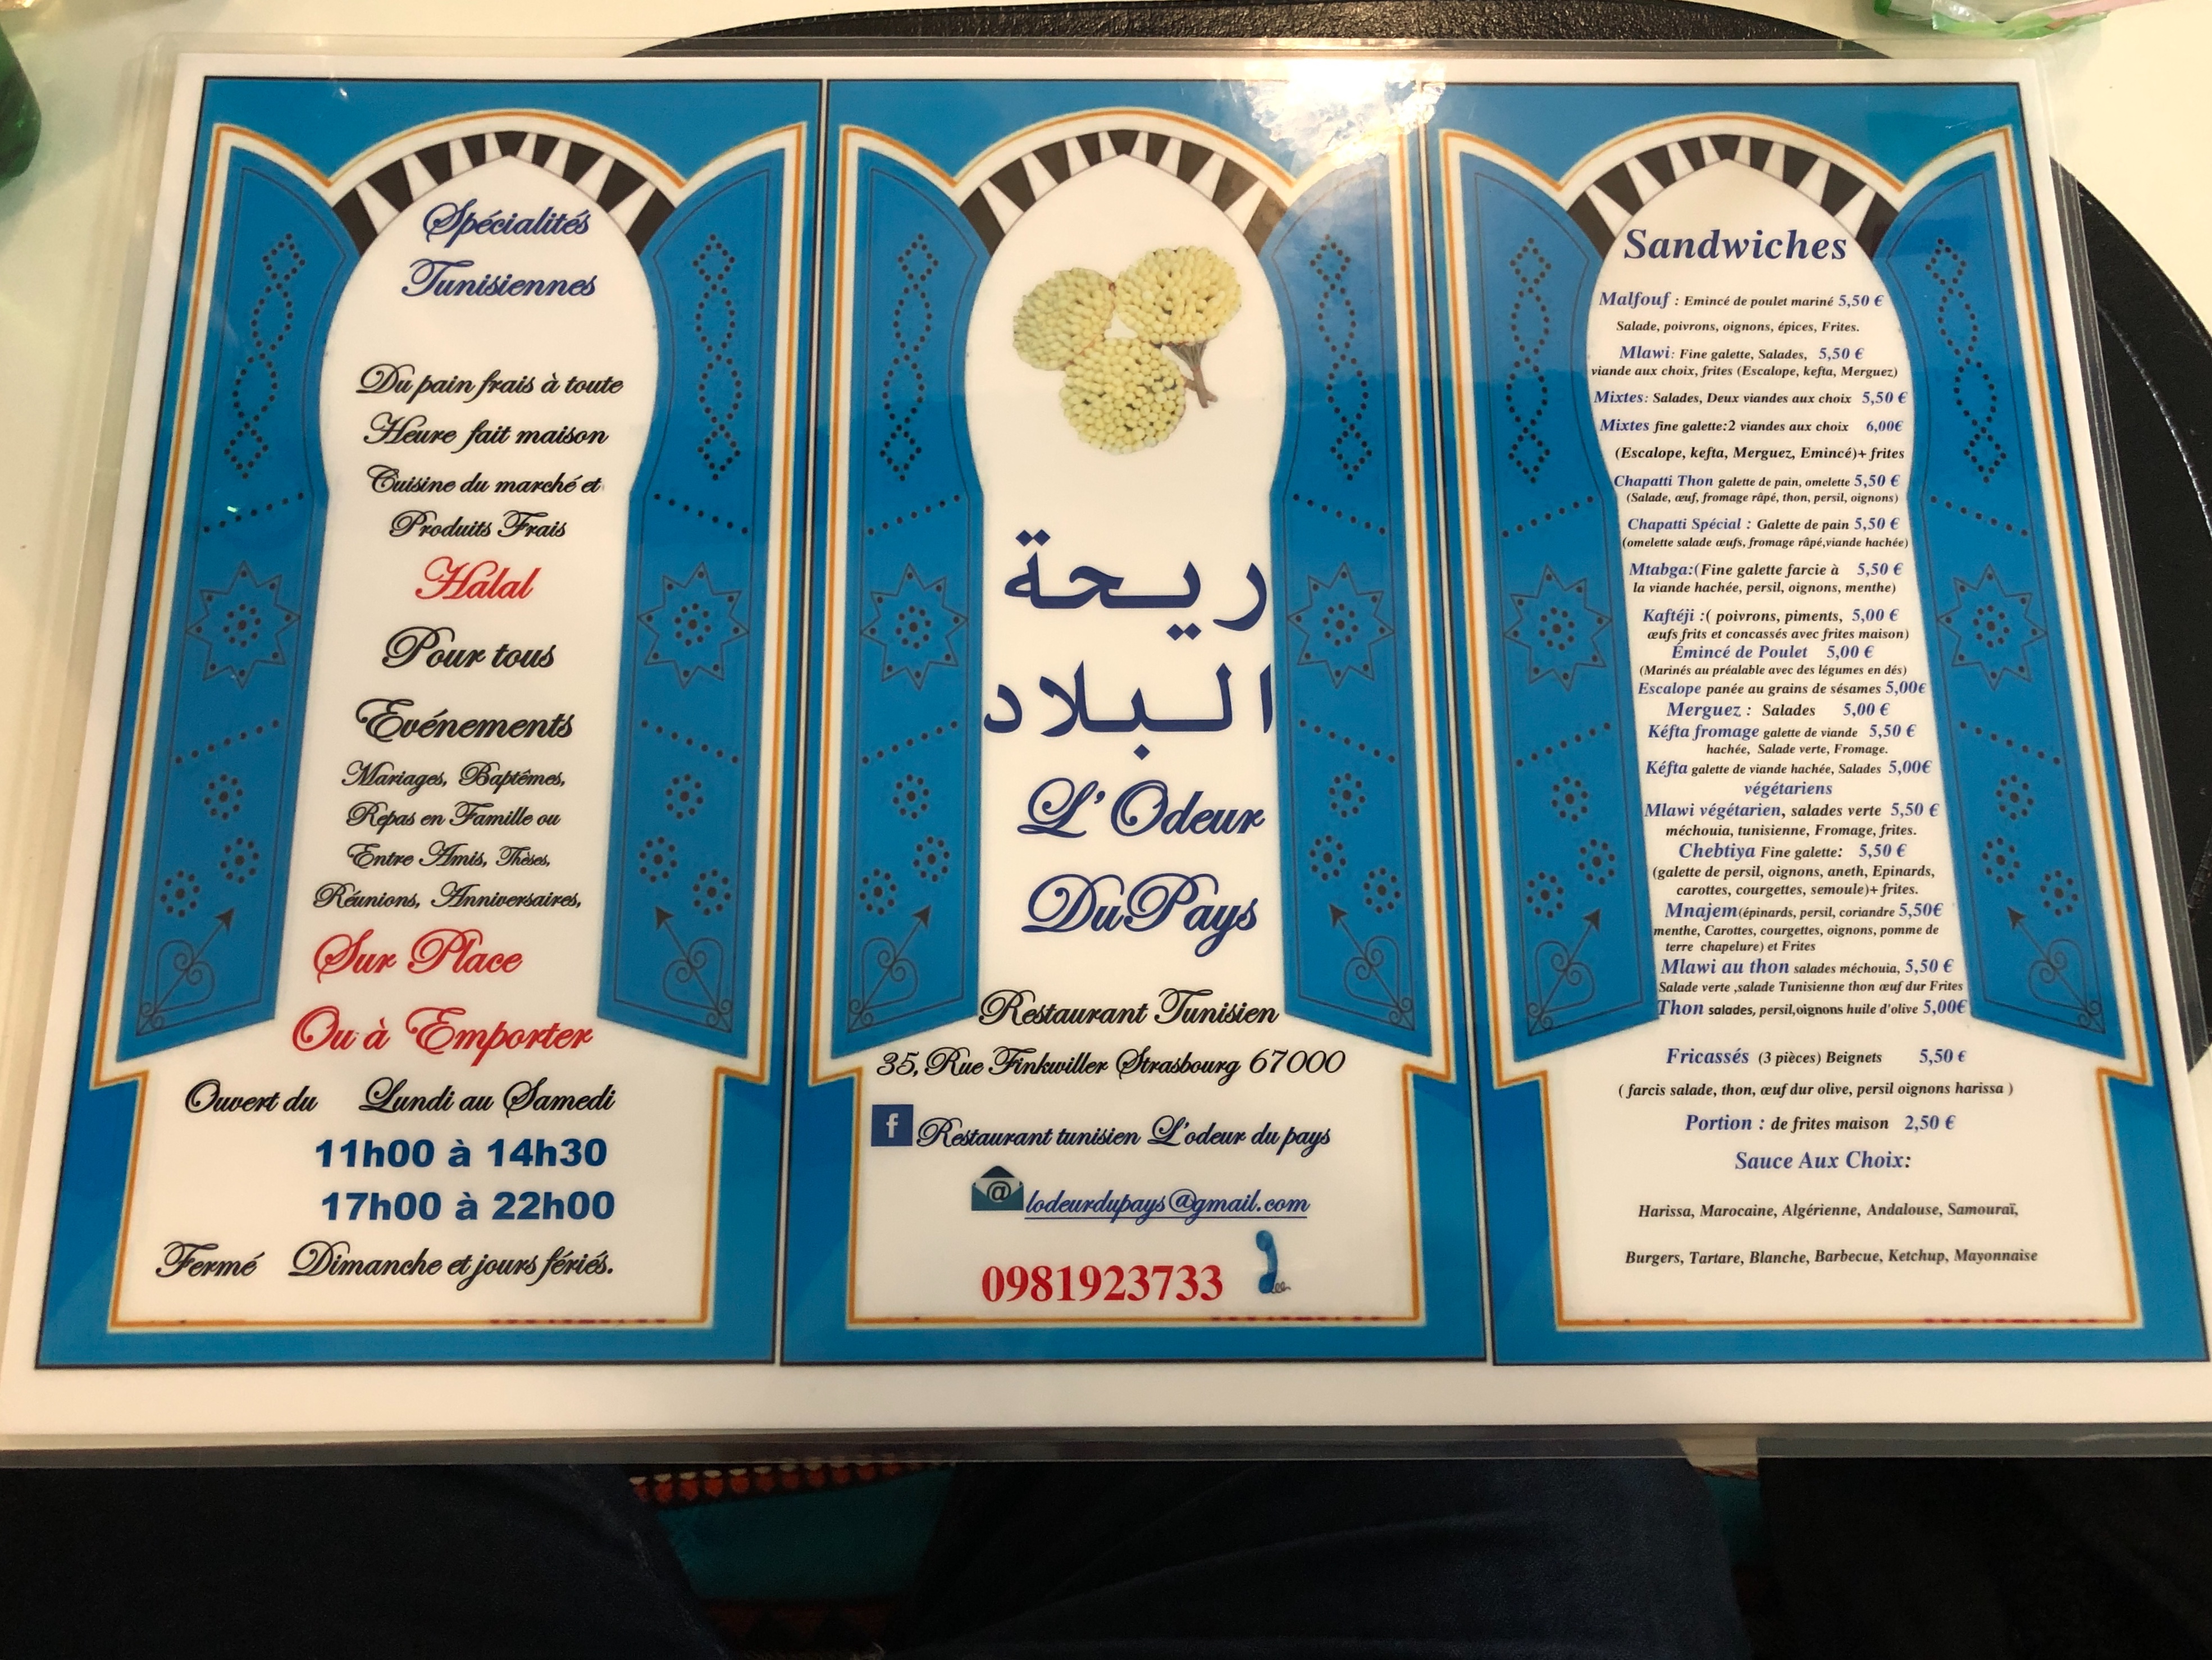 Spécialités
Tunisiennes
Du pain frais à toute
Heure fait maison
Cuisine du marché et
Produits Frais
Halal
Pour tous
Evénements
Mariages, Baptêmes,
Repas en Famille ou
Entre Amis, Thèses,
Réunions, Anniversaires,
Sur Place
Ou à Emporter
Ouvert du Lundi au Samedi
11h00 à 14h30
17h00 à 22h00
Fermé Dimanche et jours fériés.
ريحة
البلاد
L'Odeur
DuPays
Restaurant Tunisien
35, Rue Finkwiller Strasbourg 67000
f Restaurant tunisien L'odeur du pays
@ lodeurdupays@gmail.com
0981923733
Sandwiches
Malfouf : Emincé de poulet mariné 5,50 €
Salade, poivrons, oignons, épices, Frites.
Mlawi: Fine galette, Salades, 5,50 €
viande aux choix, frites (Escalope, kefta, Merguez)
Mixtes: Salades, Deux viandes aux choix 5,50 €
Mixtes fine galette:2 viandes aux choix 6,00€
(Escalope, kefta, Merguez, Emincé)+ frites
Chapatti Thon galette de pain, omelette 5,50 €
(Salade, œuf, fromage râpé, thon, persil, oignons)
Chapatti Spécial : Galette de pain 5,50 €
(omelette salade œufs, fromage râpé,viande hachée)
Mtabga:(Fine galette farcie à 5,50 €
la viande hachée, persil, oignons, menthe)
Kaftéji :( poivrons, piments, 5,00 €
œufs frits et concassés avec frites maison)
Émincé de Poulet 5,00 €
(Marinés au préalable avec des légumes en dés)
Escalope panée au grains de sésames 5,00€
Merguez : Salades 5,00 €
Kéfta fromage galette de viande 5,50 €
hachée, Salade verte, Fromage.
Kéfta galette de viande hachée, Salades 5,00€
végétariens
Mlawi végétarien, salades verte 5,50 €
méchouia, tunisienne, Fromage, frites.
Chebtiya Fine galette: 5,50 €
(galette de persil, oignons, aneth, Epinards,
carottes, courgettes, semoule)+ frites.
Mnajem(épinards, persil, coriandre 5,50€
menthe, Carottes, courgettes, oignons, pomme de
terre chapelure) et Frites
Mlawi au thon salades méchouia, 5,50 €
Salade verte ,salade Tunisienne thon œuf dur Frites
Thon salades, persil,oignons huile d'olive 5,00€
Fricassés (3 pièces) Beignets 5,50 €
( farcis salade, thon, œuf dur olive, persil oignons harissa )
Portion : de frites maison 2,50 €
Sauce Aux Choix:
Harissa, Marocaine, Algérienne, Andalouse, Samouraï,
Burgers, Tartare, Blanche, Barbecue, Ketchup, Mayonnaise